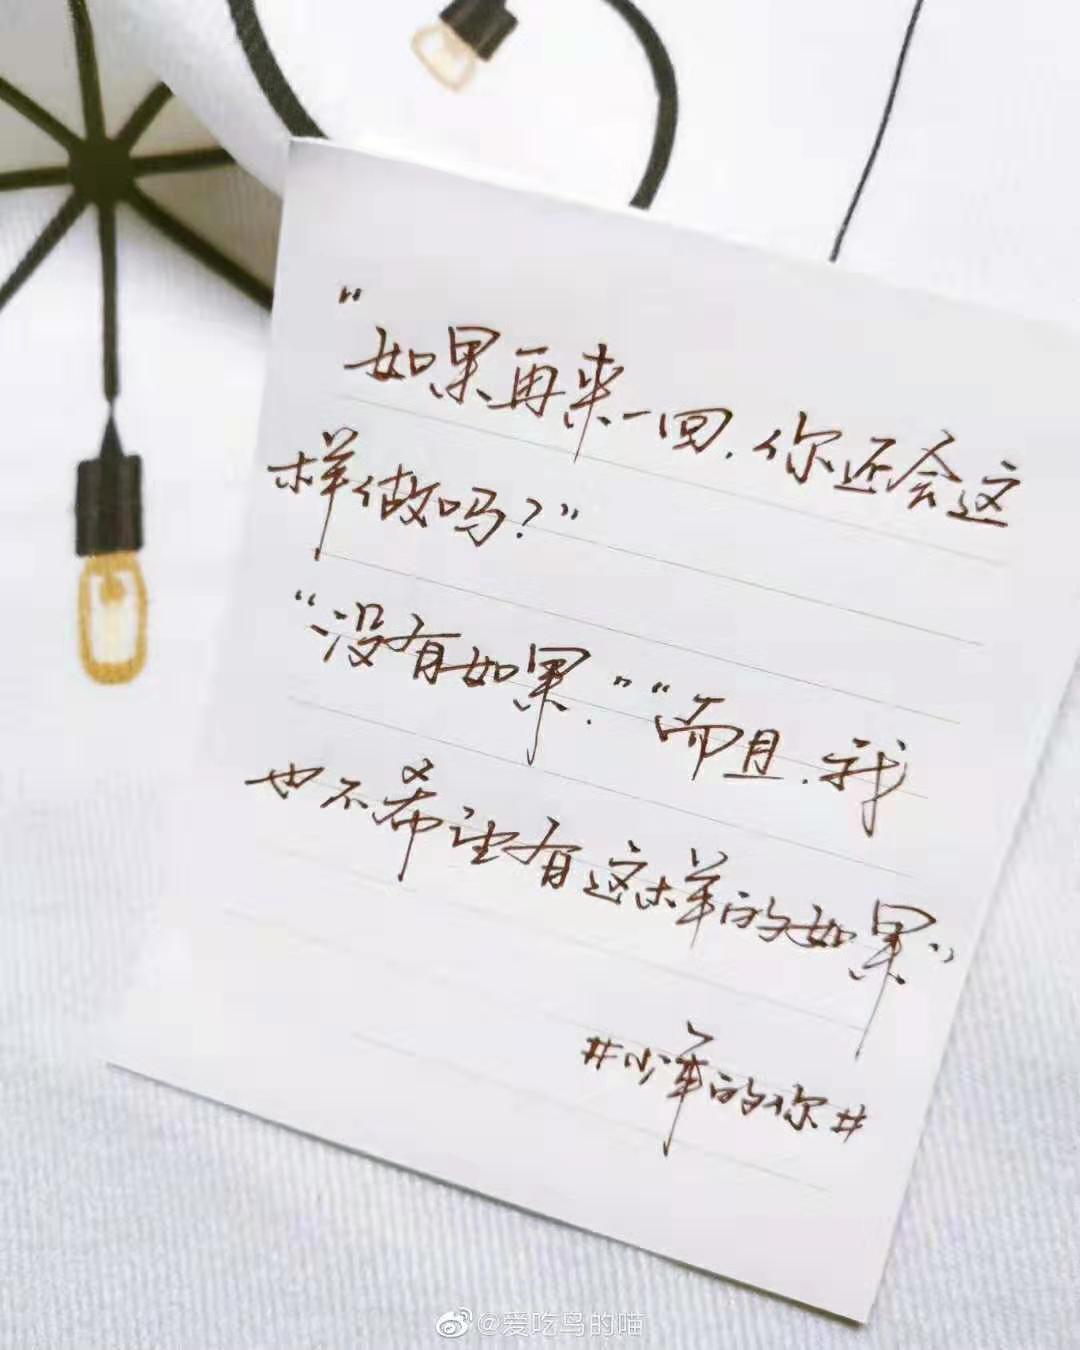 “如果再来一回.你还会这
样做吗?”
“没有如果.”“而且.我
也不希望有这样的如果”
#少年的你#
@爱吃鸟的喵